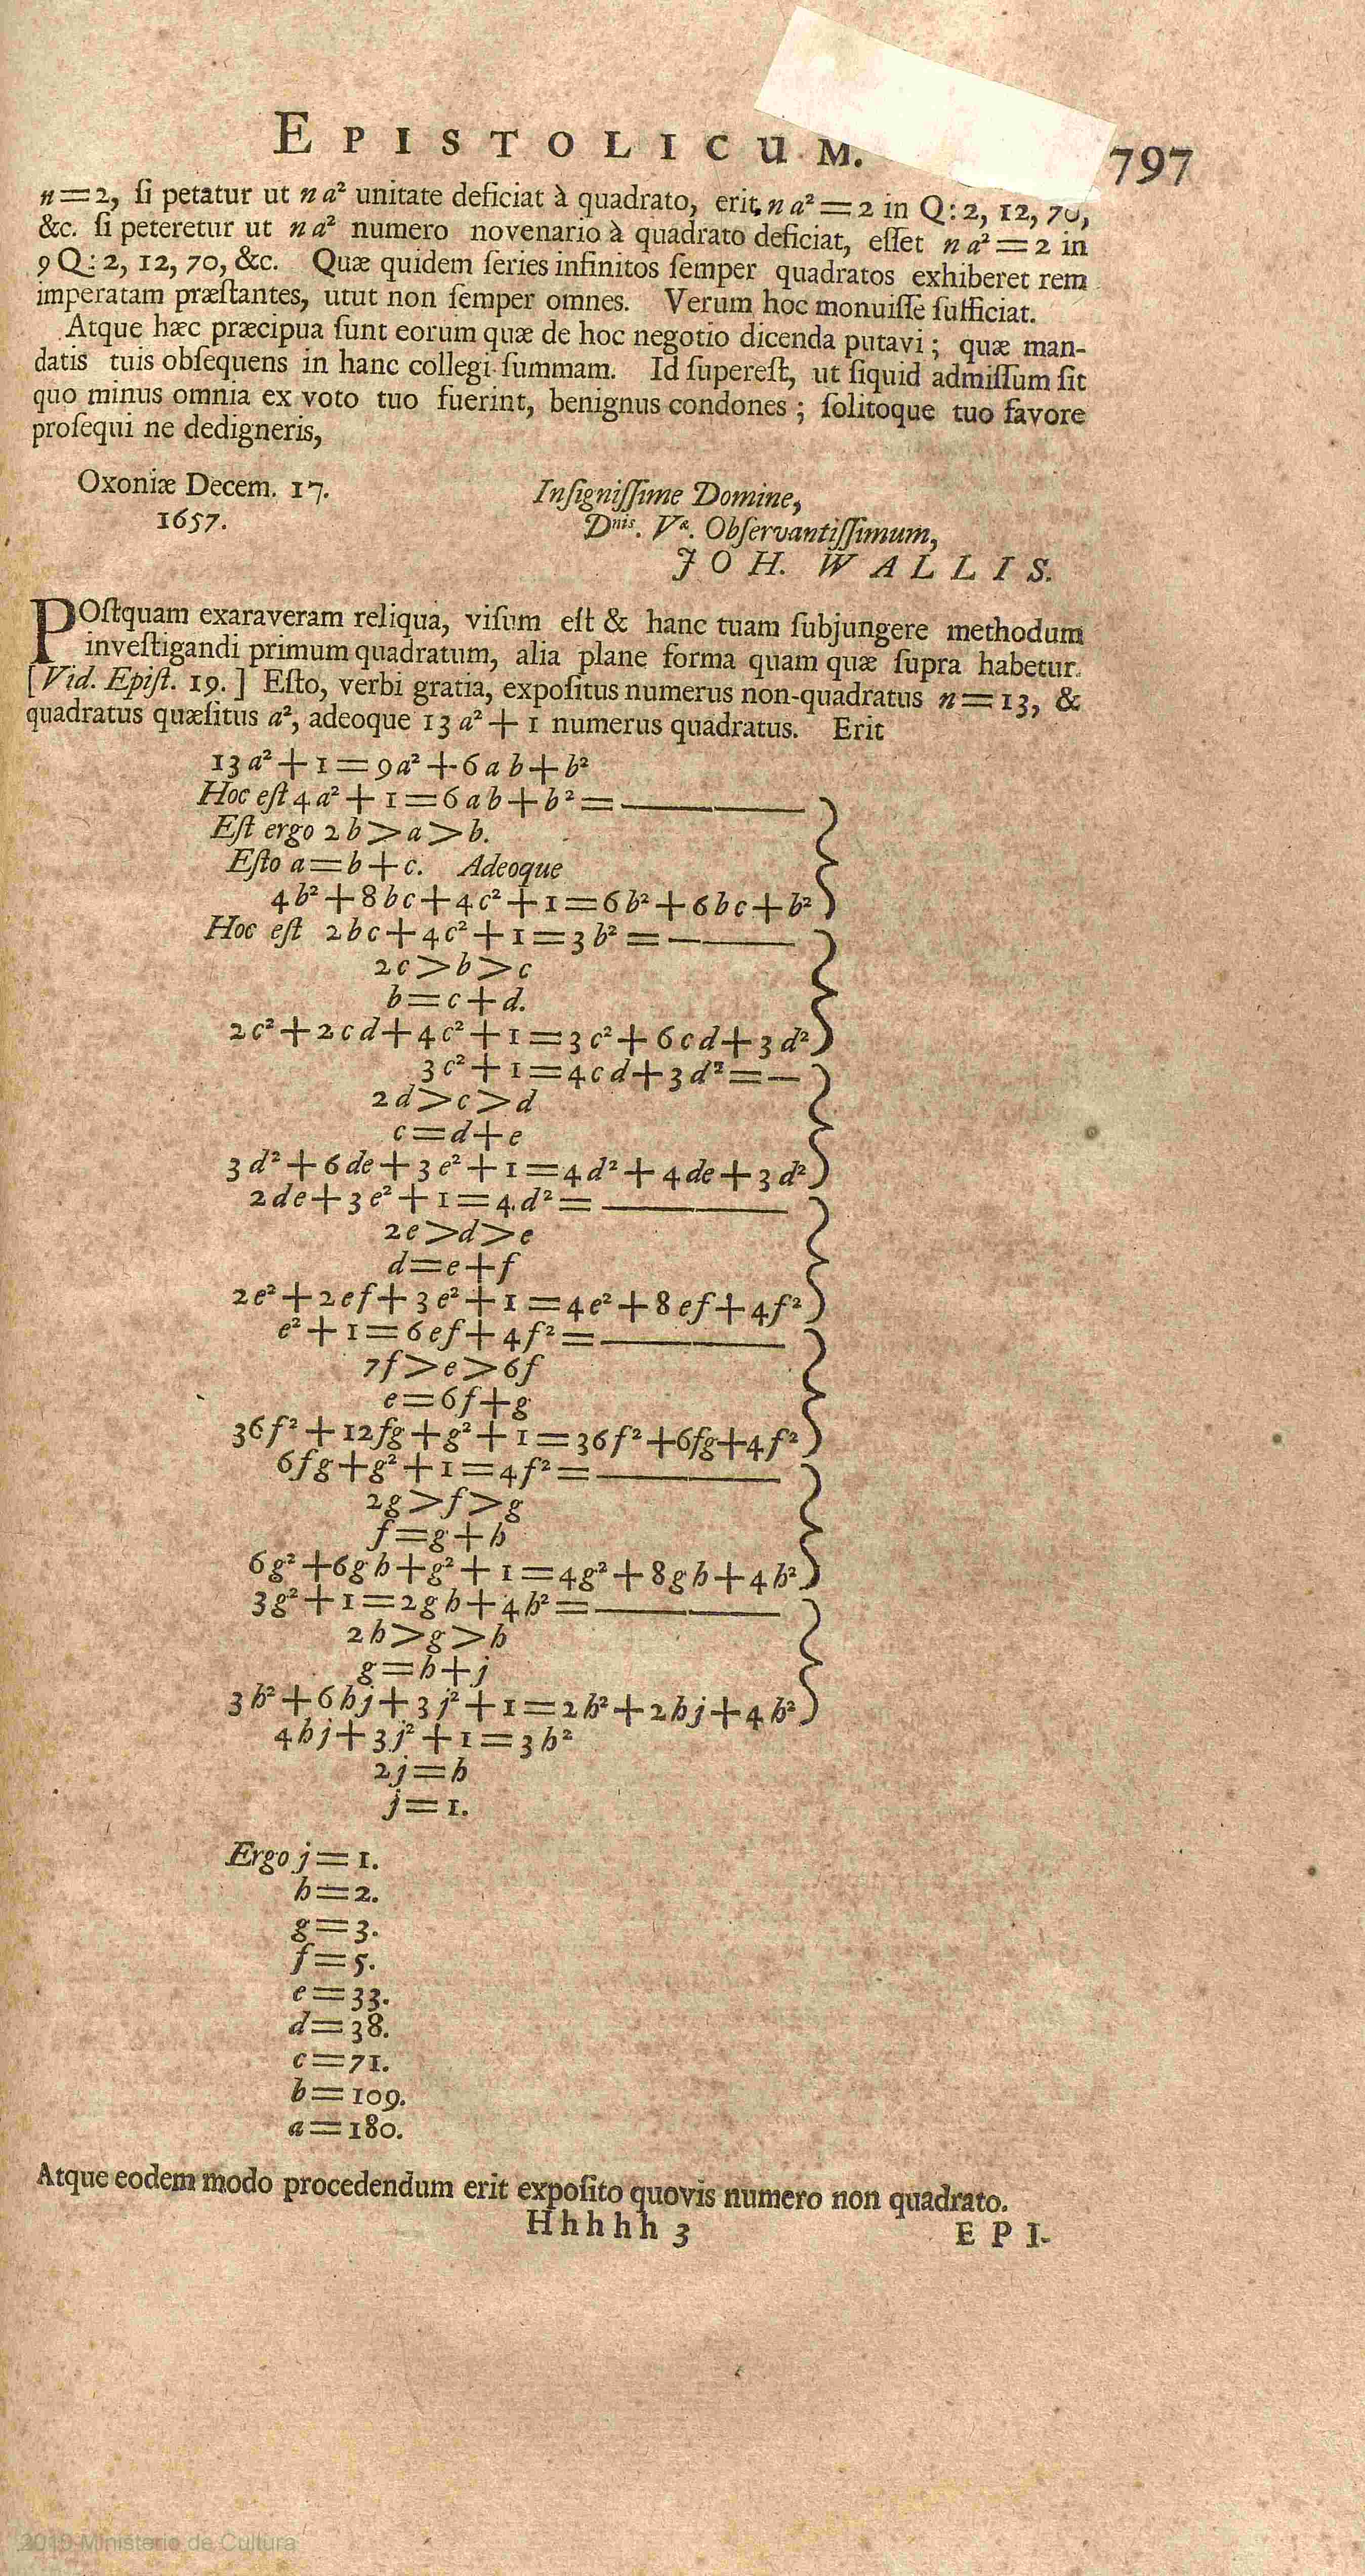 EPISTOLICUM. 797
n=2, ſi petatur ut na² unitate deficiat à quadrato, erit na²=2 in Q:2, 12, 70,
&c. ſi peteretur ut na² numero novenario à quadrato deficiat, eſſet na²=2 in
9Q:2, 12, 70, &c. Quæ quidem ſeries infinitos ſemper quadratos exhiberet rem
imperatam præſtantes, utut non ſemper omnes. Verum hoc monuiſſe ſufficiat.
Atque hæc præcipua ſunt eorum quæ de hoc negotio dicenda putavi; quæ man-
datis tuis obſequens in hanc collegi ſummam. Id ſupereſt, ut ſiquid admiſſum ſit
quo minus omnia ex voto tuo fuerint, benignus condones; ſolitoque tuo favore
proſequi ne dedigneris,
Oxoniæ Decem. 17.
1657.
Inſigniſſime Domine,
Dnis. Væ. Obſervantiſſimum,
JOH. WALLIS.
POſtquam exaraveram reliqua, viſum eſt & hanc tuam ſubjungere methodum
inveſtigandi primum quadratum, alia plane forma quam quæ ſupra habetur.
[Vid. Epiſt. 19.] Eſto, verbi gratia, expoſitus numerus non-quadratus n=13, &
quadratus quæſitus a², adeoque 13a²+1 numerus quadratus. Erit
13a²+1=9a²+6ab+b²
Hoc eſt 4a²+1=6ab+b²=
Eſt ergo 2b>a>b.
Eſto a=b+c. Adeoque
4b²+8bc+4c²+1=6b²+6bc+b²
Hoc eſt 2bc+4c²+1=3b²=
2c>b>c
b=c+d.
2c²+2cd+4c²+1=3c²+6cd+3d²
3c²+1=4cd+3d²=
2d>c>d
c=d+e
3d²+6de+3e²+1=4d²+4de+3d²
2de+3e²+1=4d²=
2e>d>e
d=e+f
2e²+2ef+3e²+1=4e²+8ef+4f²
e²+1=6ef+4f²=
7f>e>6f
e=6f+g
36f²+12fg+g²+1=36f²+6fg+4f²
6fg+g²+1=4f²=
2g>f>g
f=g+h
6g²+6gh+g²+1=4g²+8gh+4h²
3g²+1=2gh+4h²=
2h>g>h
g=h+j
3h²+6hj+3j²+1=2h²+2hj+4h²
4hj+3j²+1=3h²
2j=h
j=1.
Ergo j=1.
h=2.
g=3.
f=5.
e=33.
d=38.
c=71.
b=109.
a=180.
Atque eodem modo procedendum erit expoſito quovis numero non quadrato.
Hhhhh 3 EPI-
2010 Ministerio de Cultura